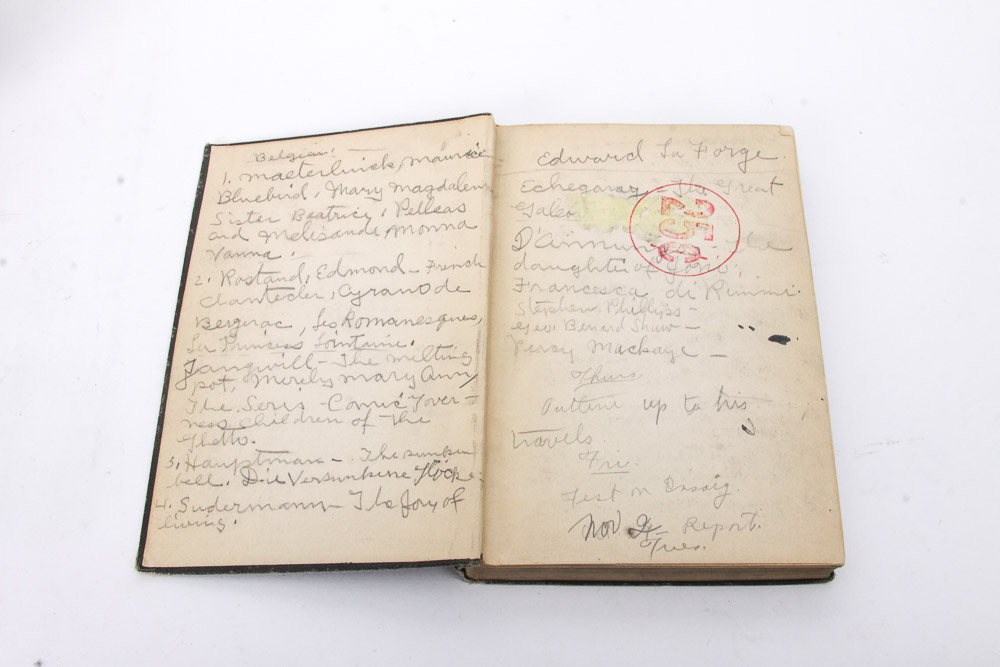 Belgian.
1. Maeterlinck, Maurice
Bluebird, Mary Magdalene
Sister Beatrice, Pelleas
and Melisande, Monna
Vanna.
2. Rostand, Edmond - French
Chantecler, Cyrano de
Bergerac, Les Romanesques,
La Princess Lointaine.
Zangwill - The melting
pot, Merely Mary Ann,
The Seris - Comic Gover-
ness Children of the
Ghetto.
3. Hauptman - The sunken
bell. Die Versunkene Glocke.
4. Sudermann - The Joy of
living.
Edward La Forge.
Echegaray - The Great
Galeo
D'Annun The
daughter of Jorio,
Francesca di Rimini.
Stephen Phillips -
Geo. Benard Shaw -
Percy Mackaye -
Thurs
Outline up to his
travels.
Fri.
Test on
Nov Report.
Tues.